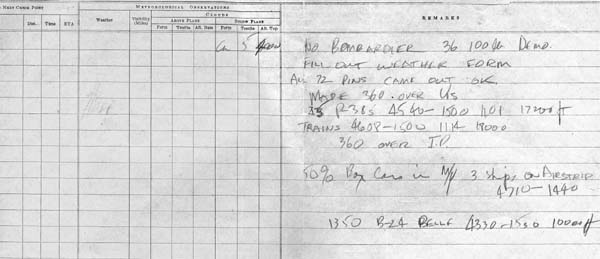 NEXT CHECK POINT
METEOROLOGICAL OBSERVATIONS
REMARKS
CLOUDS
Dist. Time ETA Weather Visibility (Miles) ABOVE PLACE BELOW PLACE
Form Tenths Alt. Base Form Tenths Alt. Top
Cu 5
No BOMBARDIER 36 100 lb Demo.
FILL OUT WEATHER FORM
ALL 72 PINS CAME OUT OK
MADE 360 OVER US
P38s 4540-1500 1101 17200 ft
TRAINS 4608-1500 1114 18000
360 OVER I.P.
50% Box Cars in M/Y 3 ships on AIRSTRIP
4310-1440
1350 B-24 BELLE 4330-1530 10000 ft